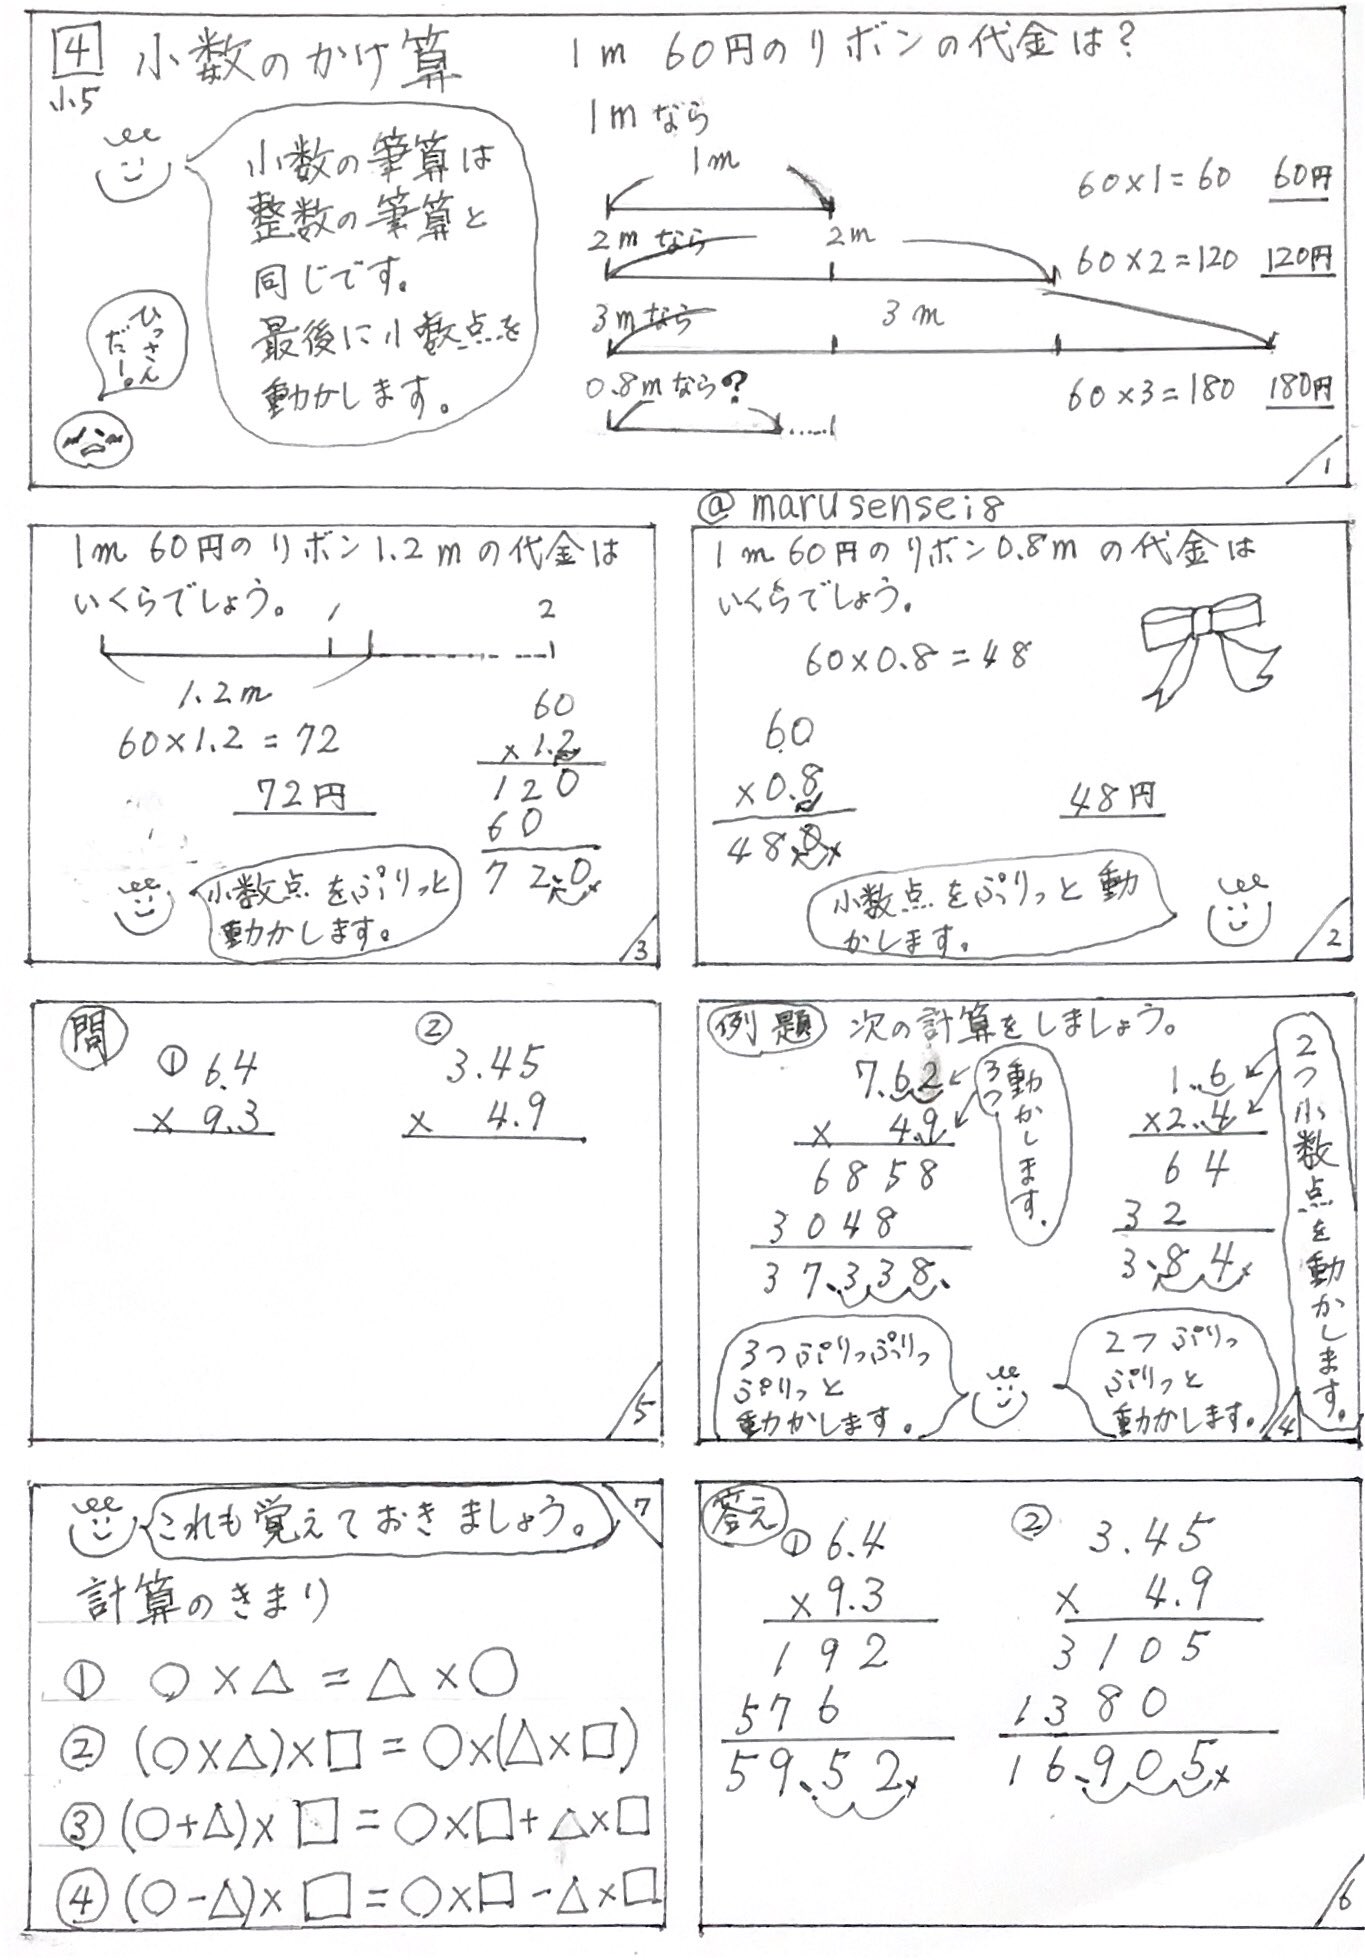 4 小数のかけ算
小5
小数の筆算は
整数の筆算と
同じです。
最後に小数点を
動かします。
ひっさん
だー。
1m 60円のリボンの代金は?
1mなら
1m
60×1=60 60円
2mなら 2m
60×2=120 120円
3mなら 3m
60×3=180 180円
0.8mなら?
1
@marusensei8
1m 60円のリボン0.8mの代金は
いくらでしょう。
60×0.8=48
60
×0.8
480
48円
小数点をぷりっと動
かします。
2
1m 60円のリボン1.2mの代金は
いくらでしょう。
1 2
1.2m
60×1.2=72
72円
60
×1.2
120
60
72.0
小数点をぷりっと
動かします。
3
例題 次の計算をしましょう。
7.62
× 4.9
6858
3048
37.338
3つ動かします。
1.6
×2.4
64
32
3.84
2つ小数点を動かします。
3つぷりっぷりっ
ぷりっと
動かします。
2つぷりっ
ぷりっと
動かします。
4
問
① 6.4
× 9.3
② 3.45
× 4.9
5
答え
① 6.4
×9.3
192
576
59.52
② 3.45
× 4.9
3105
1380
16.905
6
これも覚えておきましょう。
7
計算のきまり
① ○×△=△×○
② (○×△)×□=○×(△×□)
③ (○+△)×□=○×□+△×□
④ (○-△)×□=○×□-△×□